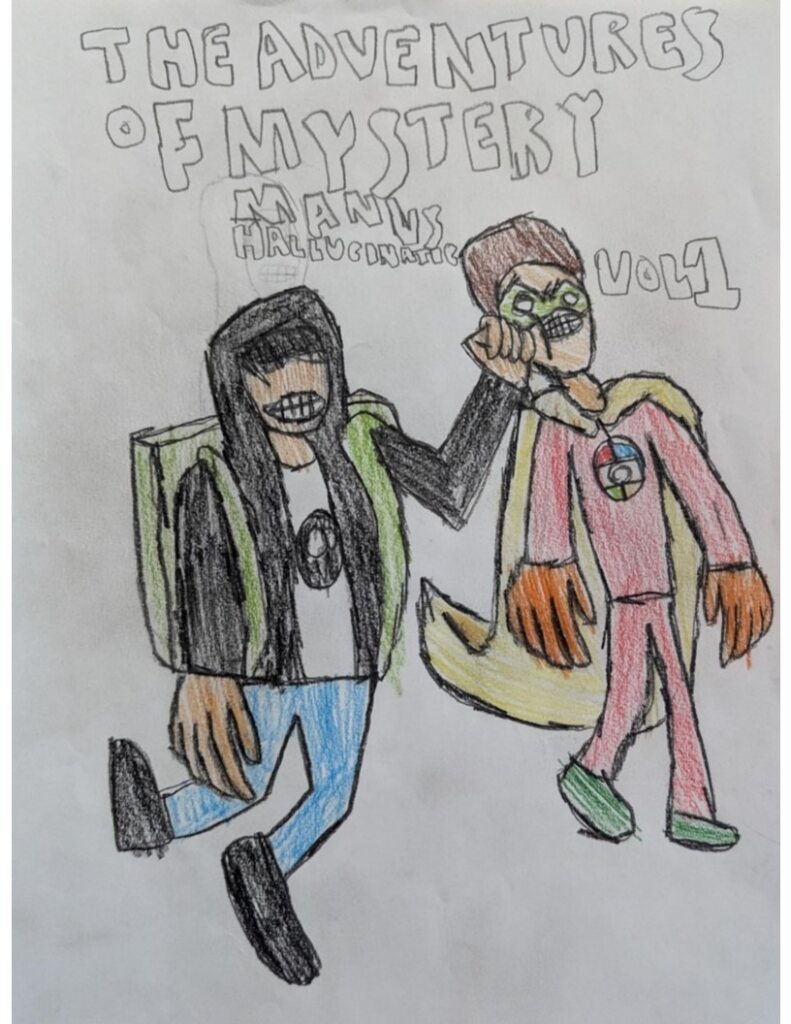 THE ADVENTURES
OF MYSTERY
MANUS
HALLUCINATIC
VOL1